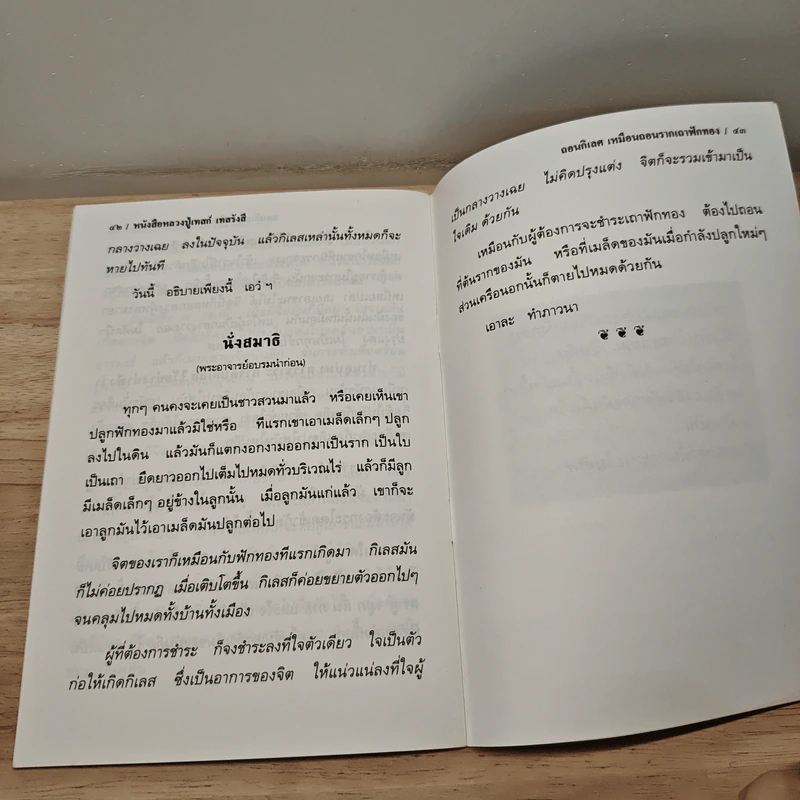 ๔๒ / หนังสือหลวงปู่เทสก์ เทสรังสี
กลางวางเฉย ลงในปัจจุบัน แล้วกิเลสเหล่านั้นทั้งหมดก็จะ
หายไปทันที
วันนี้ อธิบายเพียงนี้ เอวํ ฯ
นั่งสมาธิ
(พระอาจารย์อบรมนำก่อน)
ทุกๆ คนคงจะเคยเป็นชาวสวนมาแล้ว หรือเคยเห็นเขา
ปลูกฟักทองมาแล้วมิใช่หรือ ทีแรกเขาเอาเมล็ดเล็กๆ ปลูก
ลงไปในดิน แล้วมันก็แตกงอกงามออกมาเป็นราก เป็นใบ
เป็นเถา ยืดยาวออกไปเต็มไปหมดทั่วบริเวณไร่ แล้วก็มีลูก
มีเมล็ดเล็กๆ อยู่ข้างในลูกนั้น เมื่อลูกมันแก่แล้ว เขาก็จะ
เอาลูกมันไว้เอาเมล็ดมันปลูกต่อไป
จิตของเราก็เหมือนกับฟักทองทีแรกเกิดมา กิเลสมัน
ก็ไม่ค่อยปรากฏ เมื่อเติบโตขึ้น กิเลสก็ค่อยขยายตัวออกไปๆ
จนคลุมไปหมดทั้งบ้านทั้งเมือง
ผู้ที่ต้องการชำระ ก็จงชำระลงที่ใจตัวเดียว ใจเป็นตัว
ก่อให้เกิดกิเลส ซึ่งเป็นอาการของจิต ให้แน่วแน่ลงที่ใจผู้
ถอนกิเลศ เหมือนถอนรากเถาฟักทอง / ๔๓
เป็นกลางวางเฉย ไม่คิดปรุงแต่ง จิตก็จะรวมเข้ามาเป็น
ใจเดิม ด้วยกัน
เหมือนกับผู้ต้องการจะชำระเถาฟักทอง ต้องไปถอน
ที่ต้นรากของมัน หรือที่เมล็ดของมันเมื่อกำลังปลูกใหม่ๆ
ส่วนเครือนอกนั้นก็ตายไปหมดด้วยกัน
เอาละ ทำภาวนา